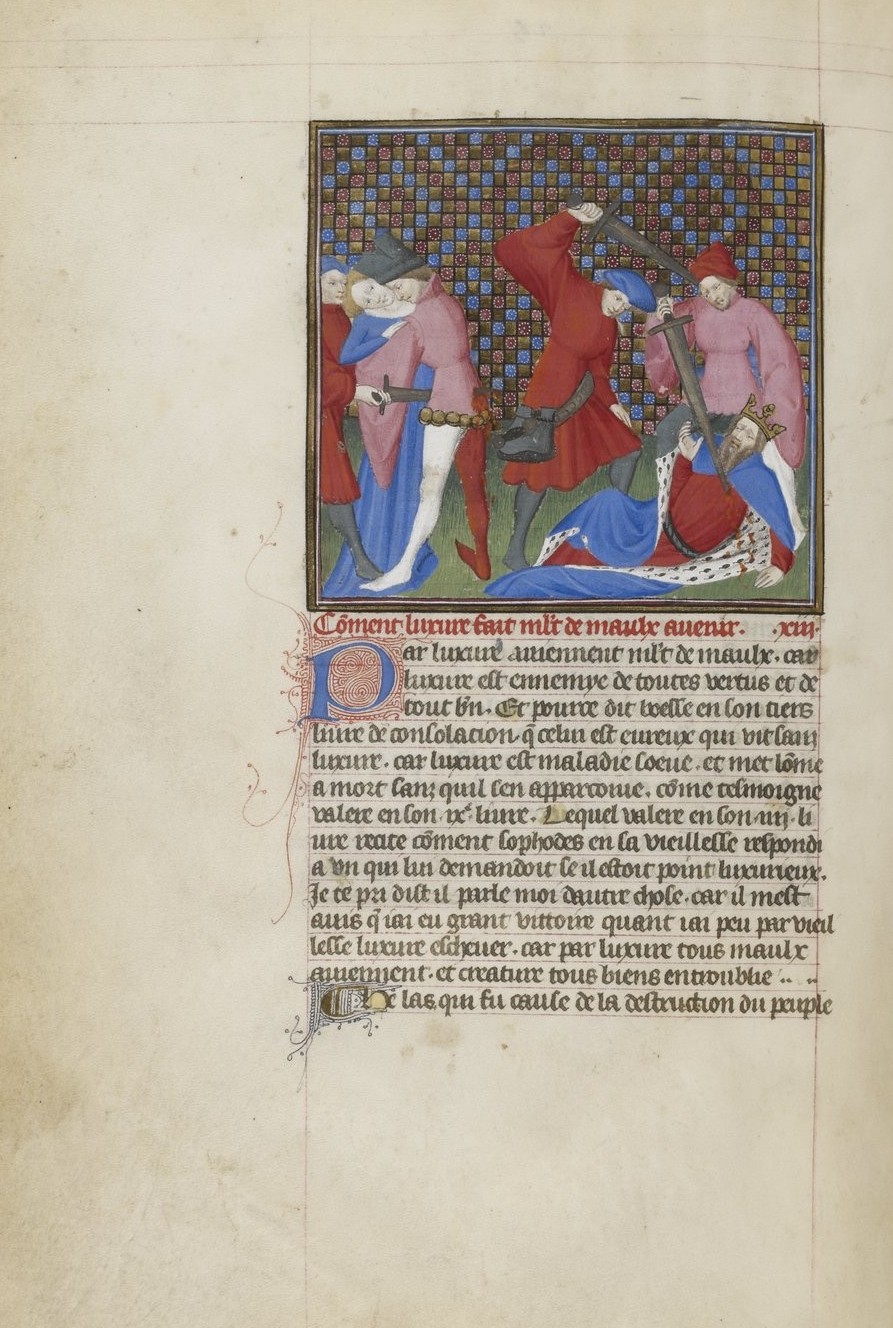 Cõment luxure fait ml̃t de maulx auenir. .xiii.
Par luxure auiennent ml̃t de maulx. car
luxure est ennemye de toutes vertus et de
tout bn̄. Et pource dit boesse en son tiers
liure de consolacion. q̃ celui est eureux qui vit sanz
luxure. car luxure est maladie soeue. et met lõme
a mort sanz quil sen apparcoiue. cõme tesmoigne
valere en son .ixᵉ. liure. Lequel valere en son .iiij. li
ure recite cõment sophodes en sa vieillesse respondi
a vn qui lui demandoit se il estoit point luxurieux.
Je te pri dist il parle moi dautre chose. car il mest
auis q̃ iai eu grant vittoire quant iai peu par vieil
lesse luxure escheuer. car par luxure tous maulx
auiennent. et creature tous biens entroublie .. ..
las qui fu cause de la destruction du peuple